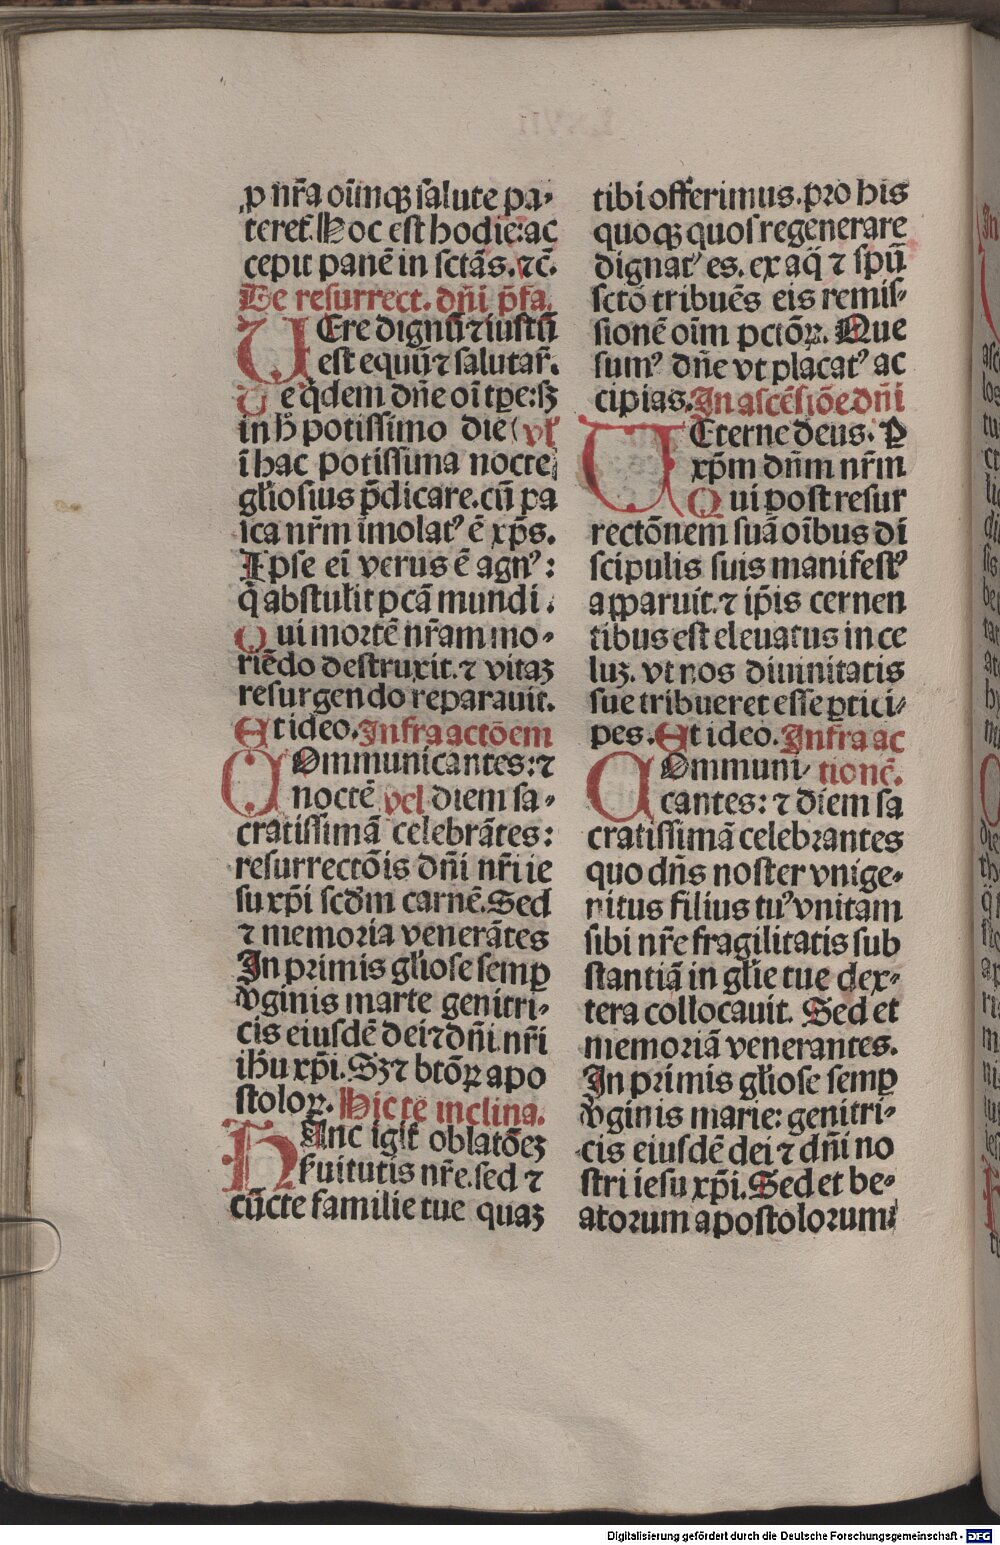 ꝓ nr̄a oīm̄qꝫ ſalute pa⸗
teret᷑. Hoc eſt hodie: ac
cepit panē in ſctās. ⁊c̄.
De reſurrect. dn̄i p̄fa.
VEre dignū ⁊ iuſtū
eſt equū ⁊ ſalutar̄.
Te q̇dem dn̄e oī tp̄e: ſꝫ
in hͦ potiſſimo die (vl̓
ī hac potiſſima nocte
gl̓ioſius p̄dicare. cū pa
ſca nr̄m īmolatꝰ ē xp̄s.
Ipſe eī verus ē agnꝰ:
q̇ abſtulit pc̄ā mundi.
Qui mortē nr̄am mo⸗
riēdo deſtruxit. ⁊ vitaꝫ
reſurgendo reparauit.
Et ideo. Infra actōem
COmmunicantes: ⁊
noctē vel diem ſa⸗
cratiſſimā celebrātes:
reſurrectōis dn̄i nr̄i ie
ſu xp̄i ſcd̄m carnē. Sed
⁊ memoria venerātes
In primis gl̓ioſe ſemꝑ
v̓ginis marie genitri⸗
cis eiuſdē dei ⁊ dn̄i nr̄i
ih̄u xp̄i. Sꝫ ⁊ btōꝝ apo
ſtoloꝝ. Hic te inclina.
HAnc igit᷑ oblatōeꝫ
ſ̓uitutis nr̄e. ſed ⁊
cūcte familie tue quaꝫ
tibi offerimus. pro his
quoqꝫ quos regenerare
dignatꝰ es. ex aq̄ ⁊ ſpū
ſcto tribuēs eis remiſ⸗
ſionē oīm pctōꝝ. Que
ſumꝰ dn̄e vt placatꝰ ac
cipias. In aſcēſiōe dn̄i
VEterne deus. P
xp̄m dn̄m nr̄m
Qui poſt reſur
rectōnem ſuā oībus di
ſcipulis ſuis manifeſtꝰ
apparuit. ⁊ ip̄is cernen
tibus eſt eleuatus in ce
luꝫ. vt nos diuinitatis
ſue tribueret eſſe ꝑtici⸗
pes. Et ideo. Infra ac
COmmuni⸗ tionē.
cantes: ⁊ diem ſa
cratiſſimā celebrantes
quo dn̄s noſter vnige⸗
nitus filius tuꝰ vnitam
ſibi nr̄e fragilitatis ſub
ſtantiā in gl̓ie tue dex⸗
tera collocauit. Sed et
memoriā venerantes.
In primis gl̓ioſe ſemꝑ
v̓ginis marie: genitri⸗
cis eiuſdē dei ⁊ dn̄i no
ſtri ieſu xp̄i. Sed et be⸗
atorum apoſtolorum
Digitalisierung gefördert durch die Deutsche Forschungsgemeinschaft - DFG